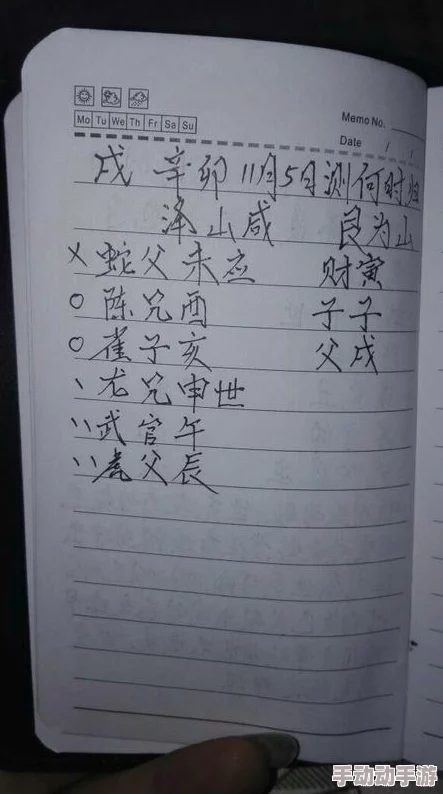 Mo Tu We Th Fr Sa Su
Memo No.
Date / /
戌 辛卯 11月5日测何时归
泽山咸 艮为山
X 蛇父未应 财寅
O 陈兄酉 子子
O 雀子亥 父戌
、龙兄申世
、、武官午
、、虎父辰
手动动手游